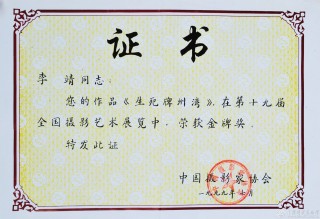 证书
李靖同志：
您的作品《生死牌州湾》，在第十九届
全国摄影艺术展览中，荣获金牌奖。
特发此证
中国摄影家协会
一九九九年七月